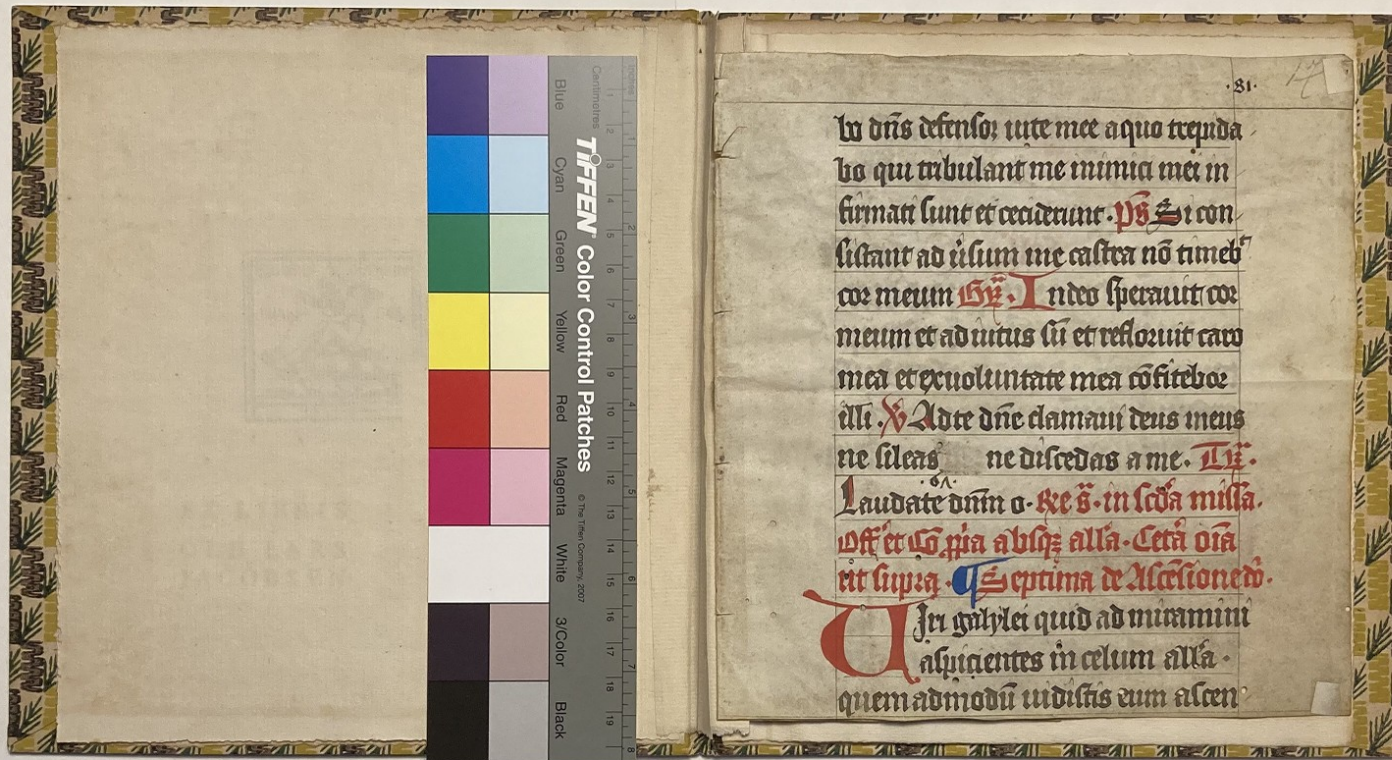 Blue
Cyan
Green
Yellow
Red
Magenta
White
3/Color
Black
TIFFEN Color Control Patches
© The Tiffen Company, 2007
Centimetres
1 2 3 4 5 6 7 8 9 10 11 12 13 14 15 16 17 18 19
Inches
1 2 3 4 5 6 7 8
17
·81·
bo dn̄s defensor uite mee a quo trepida
bo qui tribulant me inimici mei in
firmati sunt et ceciderunt · ps̄ Si con
sistant ad
cor meum Gr̄ · In deo sperauit cor
meum et adiutus sū et refloruit caro
mea et ex uoluntate mea cōfitebor
illi · V Ad te dn̄e clamaui deus meus
ne sileas ne discedas a me · Tr̄ ·
Laudate dn̄m o · in scd̄a missa ·
Off et Cō absqꝫ all̄a · Cet̄a oīa
ut supra · ¶ Septima de
Uiri galylei quid admiramini
aspicientes in celum all̄a ·
quemadmodū uidistis eum ascen